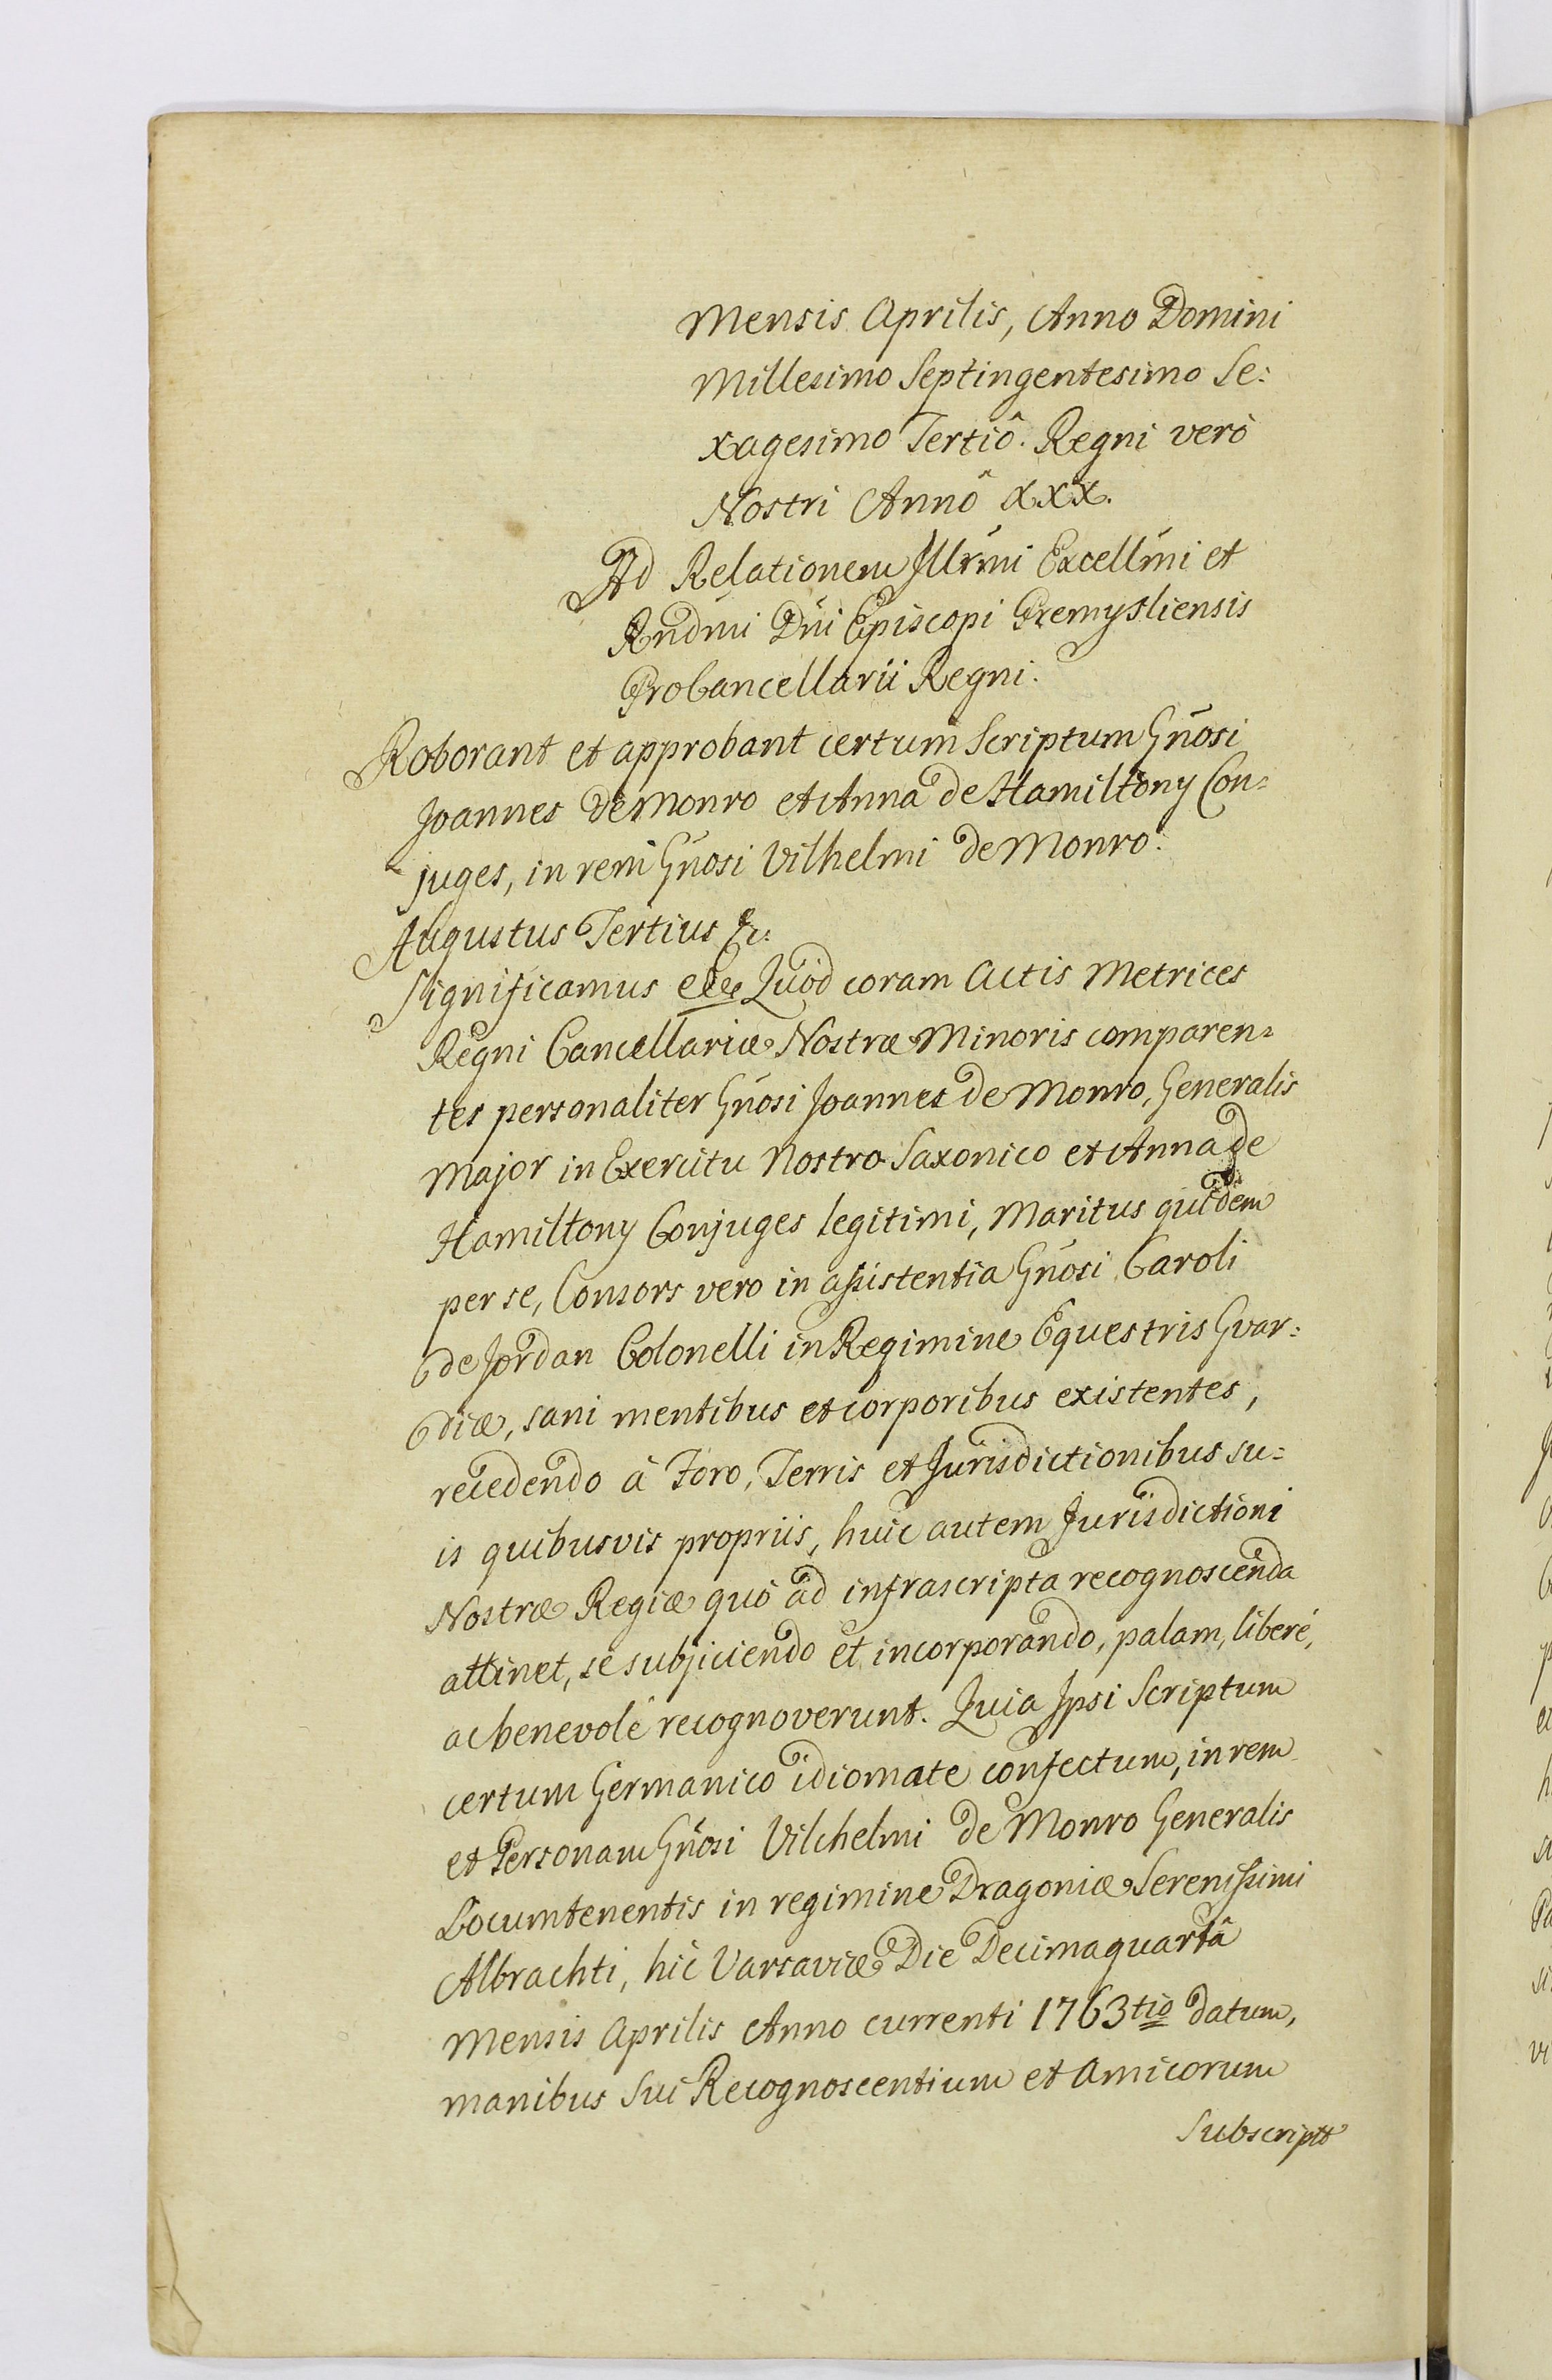 Mensis Aprilis, Anno Domini
Millesimo Septingentesimo Se:
xagesimo Tertiô. Regni verò
Nostri Annô XXX.
Ad Relationem Illrmi Excellmi et
Rndmi Dni Episcopi Premysliensis
ProCancellarii Regni.
Roborant et approbant certum Scriptum Gnosi
Joannes de Monro et Anna de Hamiltony Con=
juges, in rem Gnosi Vilhelmi de Monro.
Augustus Tertius &c:
Significamus &c Quod coram Actis Metrices
Regni Cancellariæ Nostræ Minoris comparen=
tes personaliter Gnosi Joannes de Monro, Generalis
Major in Exercitu Nostro Saxonico et Anna de
Hamiltony Conjuges legitimi, Maritus quidem
per se, Consors vero in assistentia Gnosi Caroli
de Jordan Colonelli in Regimine Equestris Gvar:
diæ, sani mentibus et corporibus existentes,
recedendo à Foro, Terris et Jurisdictionibus su=
is quibusvis propriis, huic autem Jurisdictioni
Nostræ Regiæ quò ad infrascripta recognoscenda
attinet, se subjiciendo et incorporando, palam, liberé,
ac benevolé recognoverunt. Quia Ipsi Scriptum
certum Germanico idiomate confectum, in rem
et Personam Gnosi Vilchelmi de Monro Generalis
Locumtenentis in regimine Dragoniæ Serenissimi
Albrachti, hic Varsaviæ Die Decima quartâ
Mensis Aprilis Anno currenti 1763tio datum,
manibus Sui Recognoscentium et Amicorum
Subscript